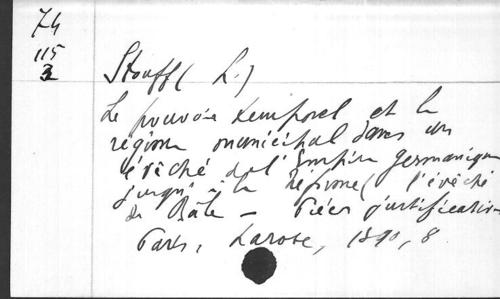 74
115
3
Stouff (L.)
Le pouvoir temporel et le
régime municipal dans un
évêché de l'Empire germanique
jusqu'à la Réforme (l'évêché
de Bâle — Pièces justificatives
Paris, Larose, 1890, 8